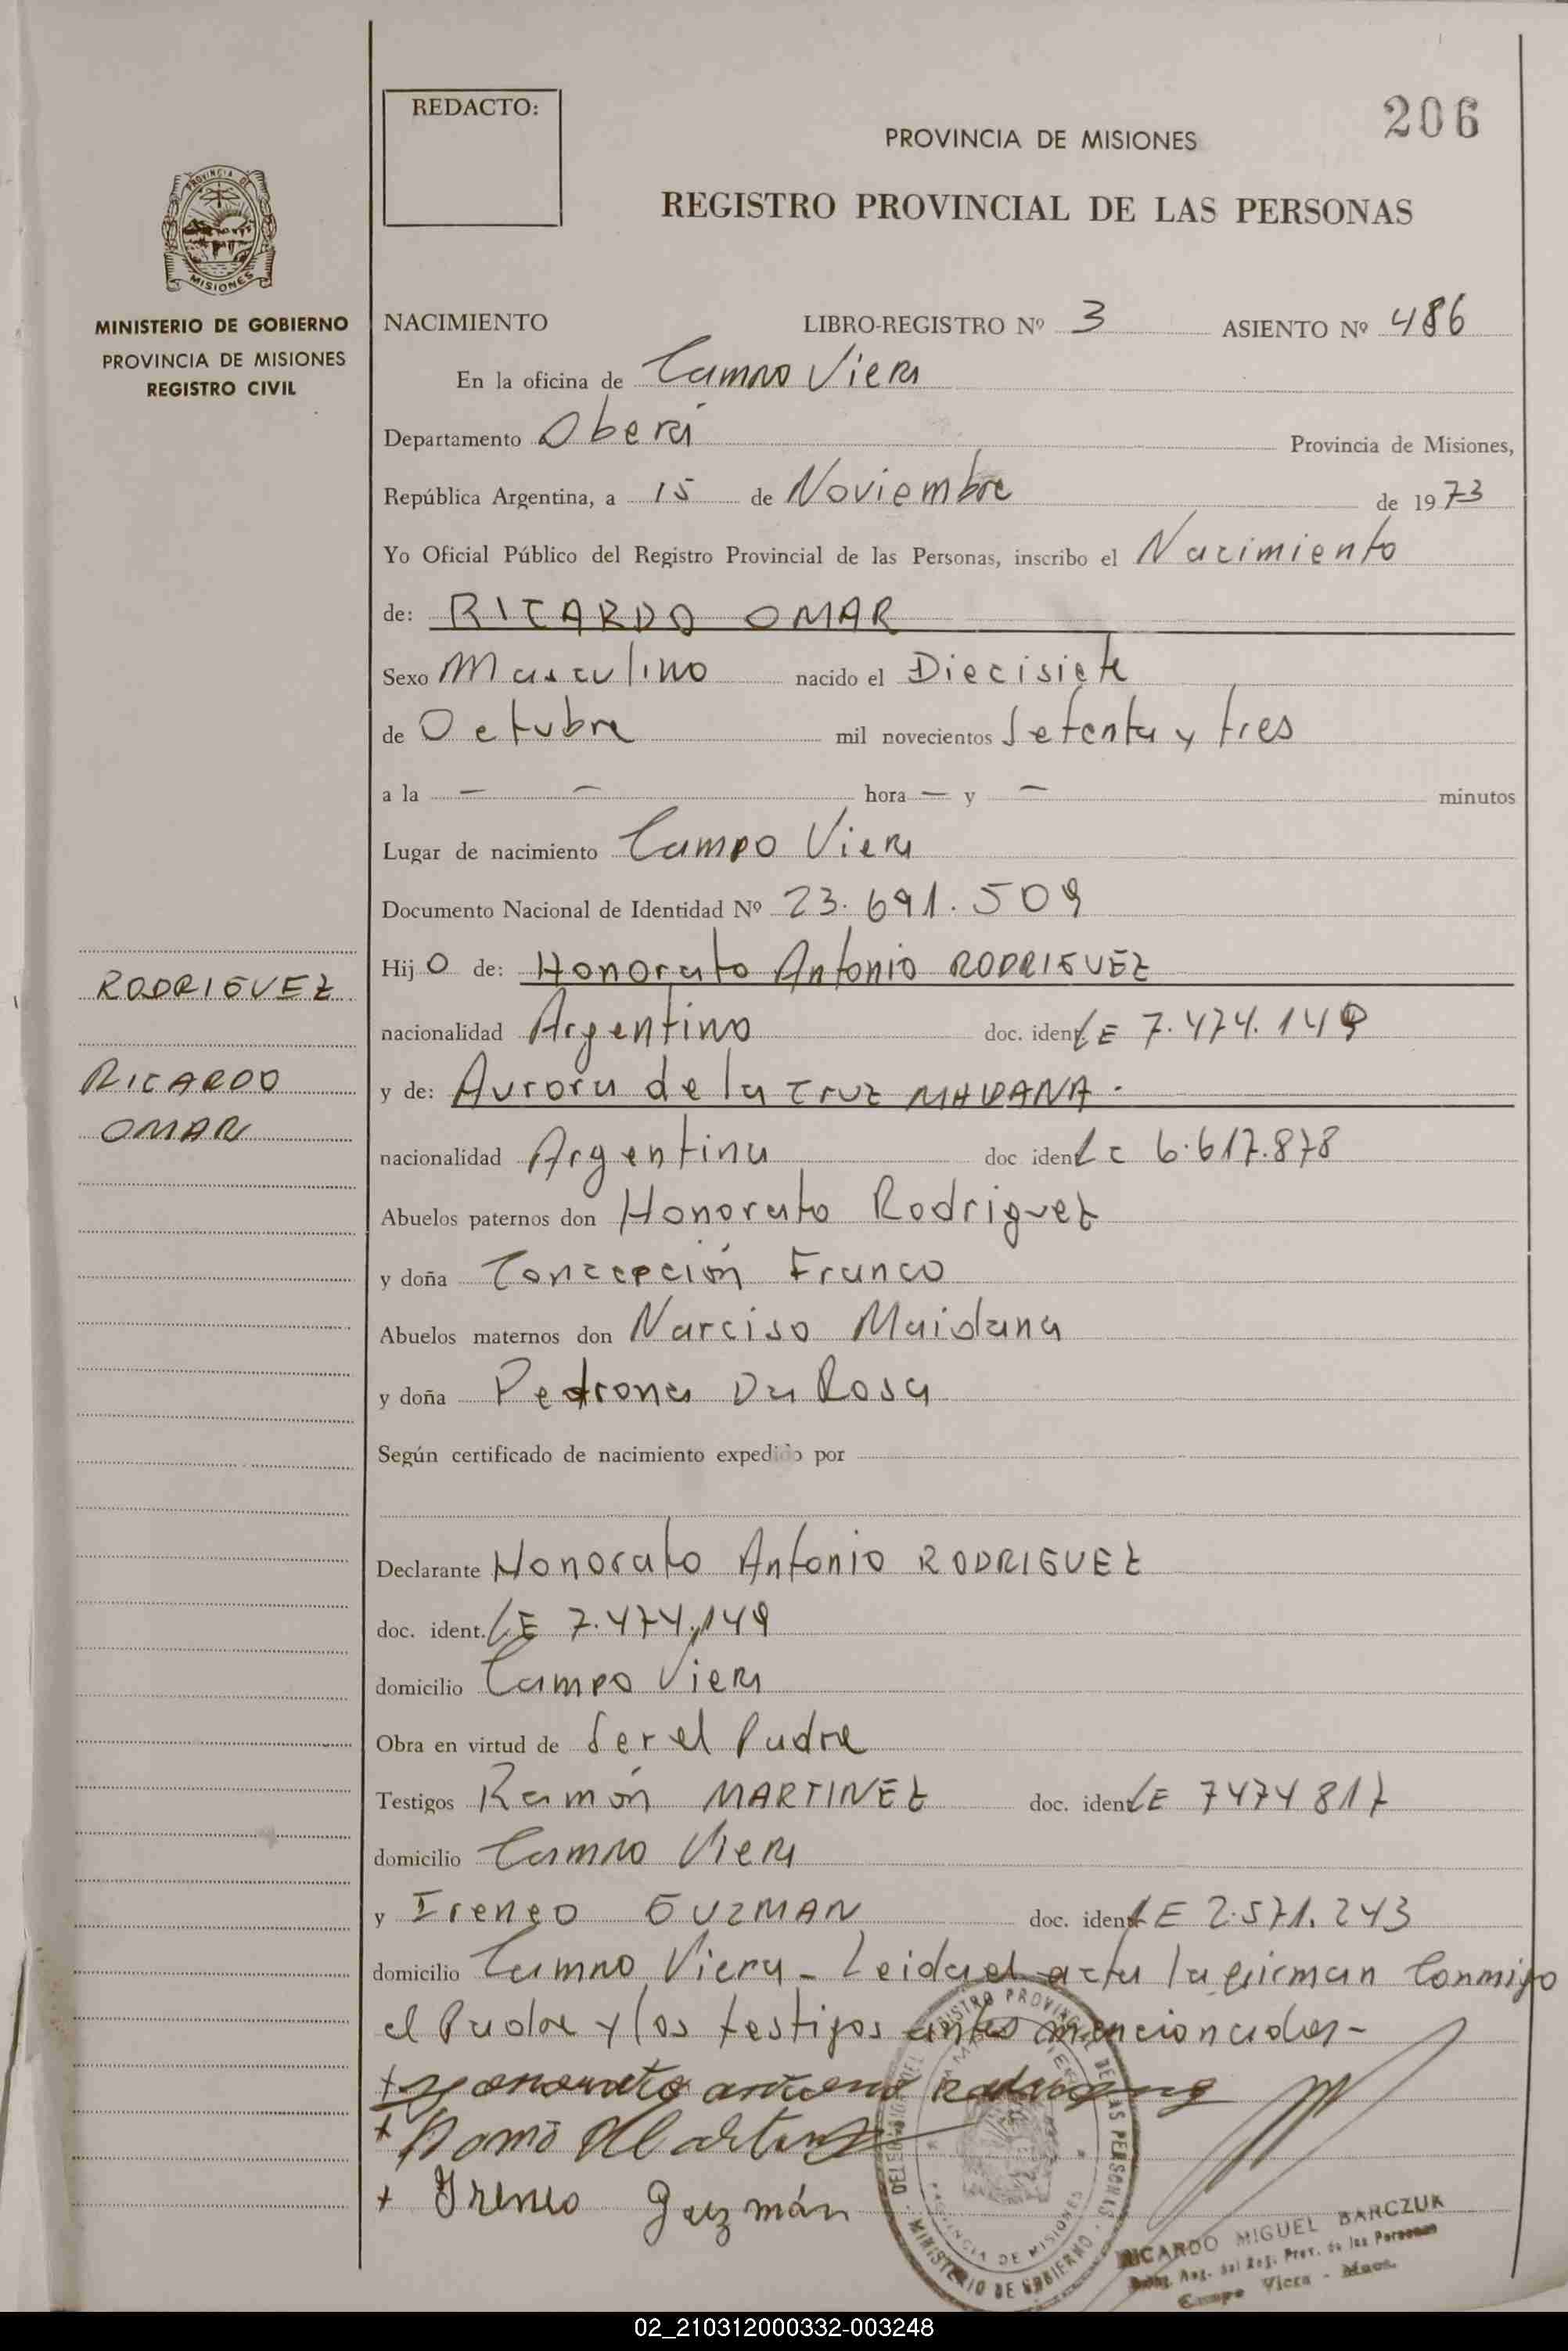 REDACTO:
206
PROVINCIA DE MISIONES
REGISTRO PROVINCIAL DE LAS PERSONAS
PROVINCIA DE
MISIONES
MINISTERIO DE GOBIERNO
PROVINCIA DE MISIONES
REGISTRO CIVIL
NACIMIENTO LIBRO-REGISTRO Nº 3 ASIENTO Nº 486
En la oficina de Campo Viera
Departamento Oberá Provincia de Misiones,
República Argentina, a 15 de Noviembre de 1973
Yo Oficial Público del Registro Provincial de las Personas, inscribo el Nacimiento
de: RICARDO OMAR
Sexo Masculino nacido el Diecisiete
de Octubre mil novecientos Setenta y tres
a la — — hora — y — minutos
Lugar de nacimiento Campo Viera
Documento Nacional de Identidad Nº 23.691.509
Hijo de: Honorato Antonio RODRIGUEZ
RODRIGUEZ
nacionalidad Argentino doc. ident LE 7.474.149
RICARDO
y de: Aurora de la Cruz MAIDANA.
OMAR
nacionalidad Argentina doc ident LC 6.617.878
Abuelos paternos don Honorato Rodriguez
y doña Concepción Franco
Abuelos maternos don Narciso Maidana
y doña Pedrona Da Rosa
Según certificado de nacimiento expedido por
Declarante Honorato Antonio RODRIGUEZ
doc. ident. LE 7.474.149
domicilio Campo Viera
Obra en virtud de Ser el Padre
Testigos Ramón MARTINEZ doc. ident LE 7474817
domicilio Campo Viera
y Ireneo GUZMAN doc. ident LE 2.571.243
domicilio Campo Viera - Leida el acta la firman Conmigo
el Padre y los testigos antes mencionados -
+ Honorato antonio Rodriguez
+ Ramo Martinez
+ Ireneo Guzmán
REGISTRO PROVINCIAL DE LAS PERSONAS
PROVINCIA DE MISIONES
MINISTERIO DE GOBIERNO
RICARDO MIGUEL BARCZUK
del Reg. Prov. de las Personas
Campo Viera - Mnes.
02_210312000332-003248